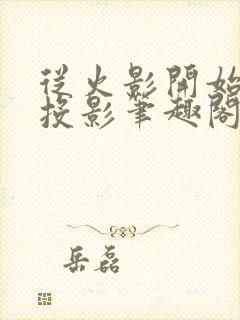 從火影開始
投影筆趣閣
岳磊